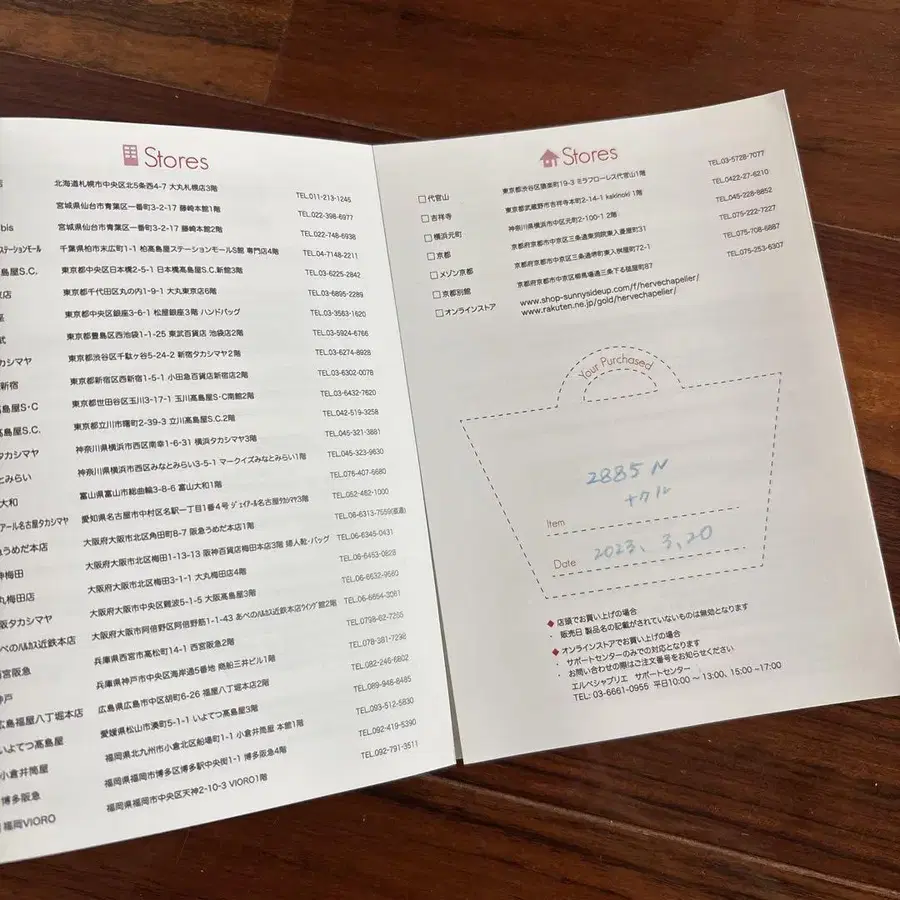 Stores
北海道札幌市中央区北5条西4-7 大丸札幌店3階 TEL.011-213-1245
宮城県仙台市青葉区一番町3-2-17 藤崎本館1階 TEL.022-398-6977
bis 宮城県仙台市青葉区一番町3-2-17 藤崎本館2階 TEL.022-748-6938
ステーションモール 千葉県柏市末広町1-1 柏高島屋ステーションモールS館 専門店4階 TEL.04-7148-2211
高島屋S.C. 東京都中央区日本橋2-5-1 日本橋高島屋S.C.新館3階 TEL.03-6225-2842
京店 東京都千代田区丸の内1-9-1 大丸東京店6階 TEL.03-6895-2289
座 東京都中央区銀座3-6-1 松屋銀座3階 ハンドバッグ TEL.03-3563-1620
武 東京都豊島区西池袋1-1-25 東武百貨店 池袋店2階 TEL.03-5924-6766
タカシマヤ 東京都渋谷区千駄ヶ谷5-24-2 新宿タカシマヤ2階 TEL.03-6274-8928
新宿 東京都新宿区西新宿1-5-1 小田急百貨店新宿店2階 TEL.03-6302-0078
高島屋S・C 東京都世田谷区玉川3-17-1 玉川高島屋S・C南館2階 TEL.03-6432-7620
高島屋S.C. 東京都立川市曙町2-39-3 立川高島屋S.C.2階 TEL.042-519-3258
タカシマヤ 神奈川県横浜市西区南幸1-6-31 横浜タカシマヤ3階 TEL.045-321-3881
とみらい 神奈川県横浜市西区みなとみらい3-5-1 マークイズみなとみらい1階 TEL.045-323-9630
大和 富山県富山市総曲輪3-8-6 富山大和1階 TEL.076-407-6680
アール名古屋タカシマヤ 愛知県名古屋市中村区名駅一丁目1番4号 ジェイアール名古屋タカシマヤ3階 TEL.052-462-1000
急うめだ本店 大阪府大阪市北区角田町8-7 阪急うめだ本店1階 TEL.06-6313-7559(直通)
神梅田 大阪府大阪市北区梅田1-13-13 阪神百貨店梅田本店3階 婦人靴・バッグ TEL.06-6345-0431
丸梅田店 大阪府大阪市北区梅田3-1-1 大丸梅田店4階 TEL.06-6453-0828
阪タカシマヤ 大阪府大阪市中央区難波5-1-5 大阪高島屋3階 TEL.06-6632-9580
あべのハルカス近鉄本店 大阪府大阪市阿倍野区阿倍野筋1-1-43 あべのハルカス近鉄本店ウイング館2階 TEL.06-6654-3061
西宮阪急 兵庫県西宮市高松町14-1 西宮阪急2階 TEL.0798-62-7265
神戸 兵庫県神戸市中央区海岸通5番地 商船三井ビル1階 TEL.078-381-7296
広島福屋八丁堀本店 広島県広島市中区胡町6-26 福屋八丁堀本店2階 TEL.082-246-6802
いよてつ高島屋 愛媛県松山市湊町5-1-1 いよてつ高島屋3階 TEL.089-948-8485
小倉井筒屋 福岡県北九州市小倉北区船場町1-1 小倉井筒屋 本館1階 TEL.093-512-5830
博多阪急 福岡県福岡市博多区博多駅中央街1-1 博多阪急4階 TEL.092-419-5390
福岡VIORO 福岡県福岡市中央区天神2-10-3 VIORO1階 TEL.092-791-3511
Stores
代官山 東京都渋谷区猿楽町19-3 ミラフローレス代官山1階 TEL.03-5728-7077
吉祥寺 東京都武蔵野市吉祥寺本町2-14-1 kakinoki 1階 TEL.0422-27-6210
横浜元町 神奈川県横浜市中区元町2-100-1 2階 TEL.045-228-8852
京都 京都府京都市中京区三条通東洞院東入菱屋町31 TEL.075-222-7227
メゾン京都 京都府京都市中京区三条通堺町東入桝屋町72-1 TEL.075-708-6887
京都別館 京都府京都市中京区柳馬場通三条下る槌屋町87 TEL.075-253-6307
オンラインストア www.shop-sunnysideup.com/f/hervechapelier/
www.rakuten.ne.jp/gold/hervechapelier/
Your Purchased
2885 N
ナクル
Item
Date 2023、3,20
◆ 店頭でお買い上げの場合
・ 販売日 製品名の記載がされていないものは無効となります
◆ オンラインストアでお買い上げの場合
・ サポートセンターのみでの対応となります
・ お問い合わせの際はご注文番号をお知らせください
エルベシャプリエ サポートセンター
TEL: 03-6661-0955 平日10:00 〜 13:00、15:00 〜17:00